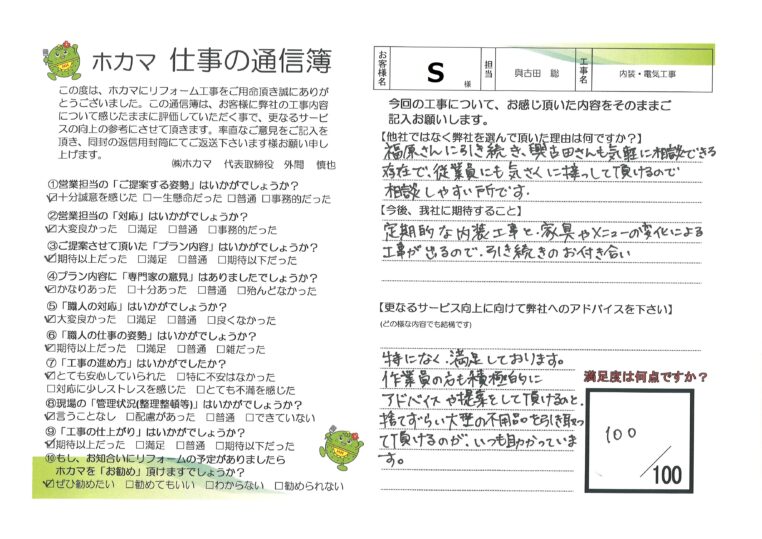 ホカマ 仕事の通信簿
この度は、ホカマにリフォーム工事をご用命頂き誠にありが
とうございました。この通信簿は、お客様に弊社の工事内容
について感じたままに評価していただく事で、更なるサービ
スの向上の参考にさせて頂きます。率直なご意見をご記入を
頂き、同封の返信用封筒にてご返送下さいます様お願い申し
上げます。
㈱ホカマ 代表取締役 外間 慎也
①営業担当の「ご提案する姿勢」はいかがでしょうか?
☑十分誠意を感じた □一生懸命だった □普通 □事務的だった
②営業担当の「対応」はいかがでしょうか?
☑大変良かった □満足 □普通 □事務的だった
③ご提案させて頂いた「プラン内容」はいかがでしょうか?
☑期待以上だった □満足 □普通 □期待以下だった
④プラン内容に「専門家の意見」はありましたでしょうか?
☑かなりあった □十分あった □普通 □殆んどなかった
⑤「職人の対応」はいかがでしょうか?
☑大変良かった □満足 □普通 □良くなかった
⑥「職人の仕事の姿勢」はいかがでしょうか?
☑期待以上だった □満足 □普通 □雑だった
⑦「工事の進め方」はいかがでしたか?
☑とても安心していられた □特に不安はなかった
□対応に少しストレスを感じた □とても不満を感じた
⑧現場の「管理状況(整理整頓等)」はいかがでしょうか?
☑言うことなし □配慮があった □普通 □できていない
⑨「工事の仕上がり」はいかがでしょうか?
☑期待以上だった □満足 □普通 □期待以下だった
⑩もし、お知合いにリフォームの予定がありましたら
ホカマを「お勧め」頂けますでしょうか?
☑ぜひ勧めたい □勧めてもいい □わからない □勧められない
お客様名 S 様 担当 與古田 聡 工事名 内装・電気工事
今回の工事について、お感じ頂いた内容をそのままご
記入お願いします。
【他社ではなく弊社を選んで頂いた理由は何ですか?】
福原さんに引き続き、與古田さんも気軽に相談できる
存在で、従業員にも気さくに接っして頂けるので
相談しやすい所です。
【今後、我社に期待すること】
定期的な内装工事と、家具やメニューの変化による
工事が出るので、引き続きのお付き合い
【更なるサービス向上に向けて弊社へのアドバイスを下さい】
(どの様な内容でも結構です)
特になく、満足しております。
作業員の方も積極的に
アドバイスや提案をして頂けるのと、
捨てずらい大型の不用品を引き取っ
て頂けるのが、いつも助かっていま
す。
満足度は何点ですか?
100
/100